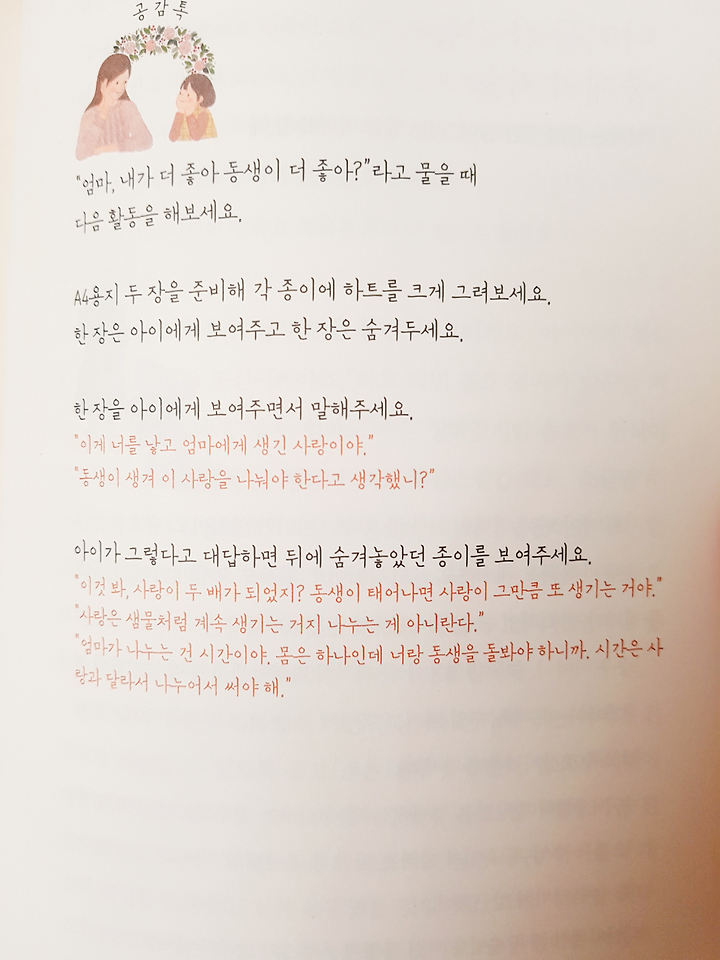 공감톡
"엄마, 내가 더 좋아 동생이 더 좋아?"라고 물을 때
다음 활동을 해보세요.
A4용지 두 장을 준비해 각 종이에 하트를 크게 그려보세요.
한 장은 아이에게 보여주고 한 장은 숨겨두세요.
한 장을 아이에게 보여주면서 말해주세요.
"이게 너를 낳고 엄마에게 생긴 사랑이야."
"동생이 생겨 이 사랑을 나눠야 한다고 생각했니?"
아이가 그렇다고 대답하면 뒤에 숨겨놓았던 종이를 보여주세요.
"이것 봐, 사랑이 두 배가 되었지? 동생이 태어나면 사랑이 그만큼 또 생기는 거야."
"사랑은 샘물처럼 계속 생기는 거지 나누는 게 아니란다."
"엄마가 나누는 건 시간이야. 몸은 하나인데 너랑 동생을 돌봐야 하니까. 시간은 사
랑과 달라서 나누어서 써야 해."